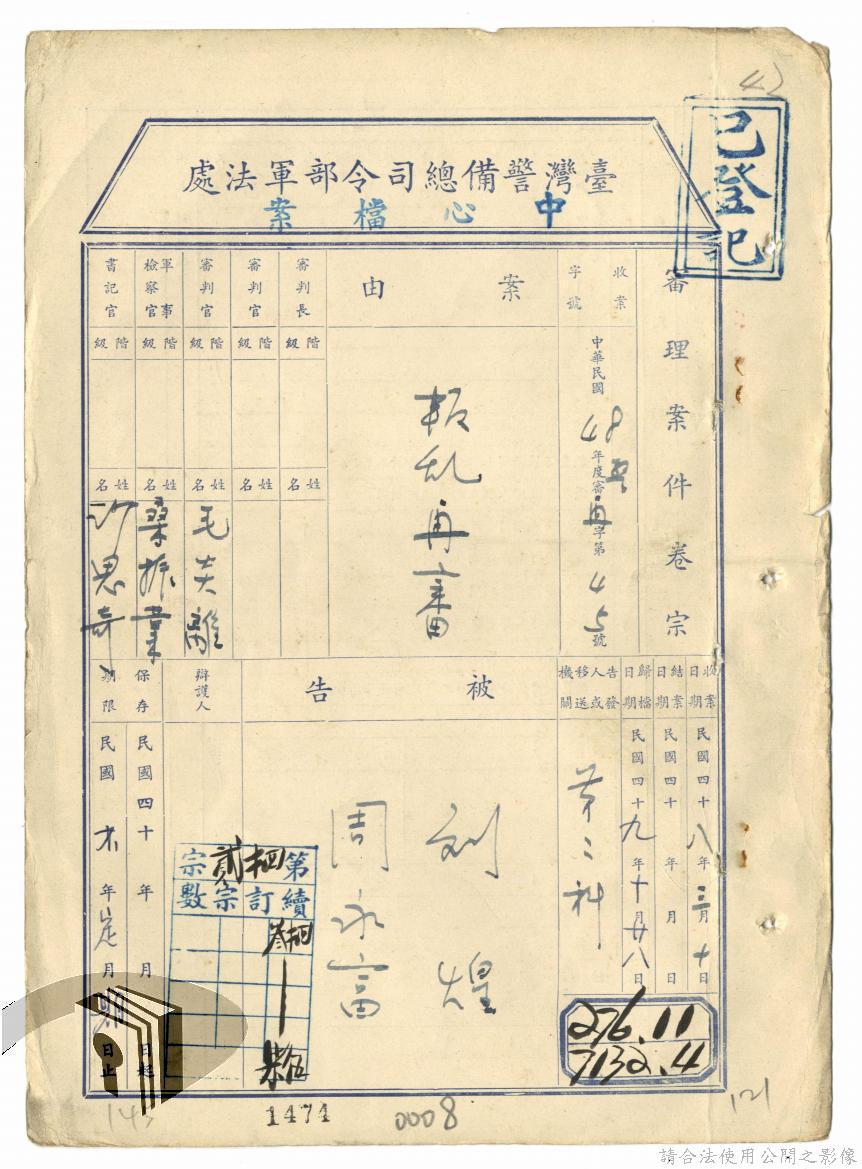 42
已登記
臺灣警備總司令部軍法處
中心檔案
審理案件卷宗
收案字號
中華民國48年度審再字第45號
案由
叛乱再審
審判長
階級
姓名
審判官
階級
姓名
審判官
階級
姓名
毛炎離
軍事檢察官
階級
姓名
桑振業
書記官
階級
姓名
沙思奇
收案日期
民國四十八年三月十日
結案日期
民國四十年月日
歸檔日期
民國四十九年十月廿八日
告發人或移送機關
第二科
被告
刘煌
周永富
辯護人
保存期限
民國四十年月日起
民國年月日止
第貳宗
續訂宗數
276.11
7132.4
1474
0008
121
請合法使用公開之影像